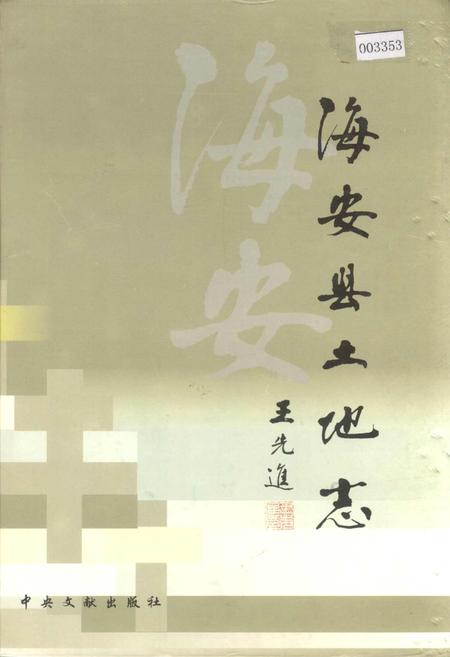 003353
海安
海安县土地志
王先進
中央文献出版社